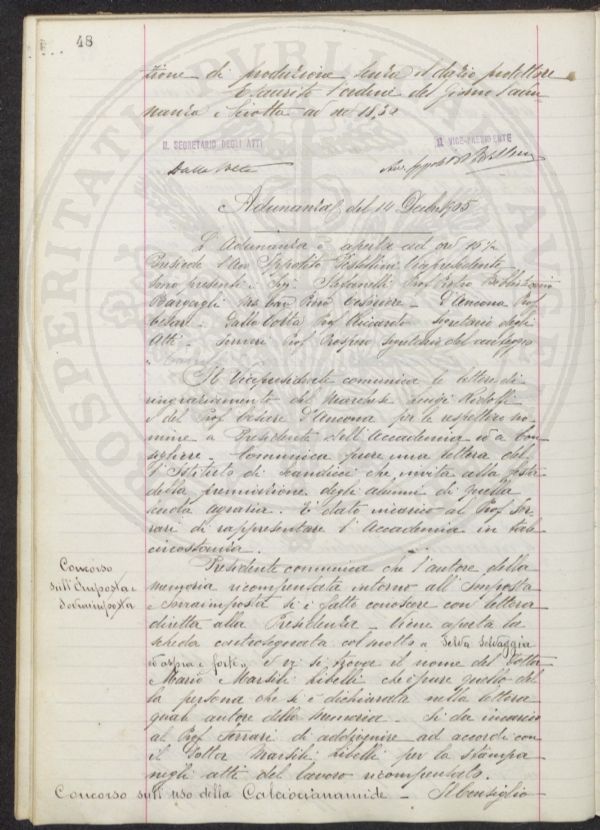 48
zione di produzione senza il dazio protettore
Esaurito l'ordine del giorno l'adu-
nanza è sciolta ad ore 18,30
IL SEGRETARIO DEGLI ATTI
IL VICE-PRESIDENTE
Dalla Volta
Adunanza del 14 Decbre 905
L'Adunanza è aperta ad ore 16 ½
Presiede l'Avv Ippolito Pestellini Vicepresidente
Sono presenti i Sigg. Stefanelli Prof Pietro
Bargagli
Cesare - Dalla Volta Prof Riccardo Segretario degli
Atti - Ferrari Prof Prospero Segretario del carteggio
Il Vicepresidente comunica le lettere di
ringraziamento del Marchese Luigi Ridolfi
e del Prof Cesare D'Ancona per le respettive no-
mine a Presidente dell'Accademia ed a Con-
sigliere - Comunica pure una lettera del-
l'Istituto di Scandicci che invita alla festa
della premiazione degli alunni di quella
scuola agraria. È dato incarico al Prof Fer-
rari di rappresentare l'Accademia in tale
circostanza.
Concorso
sull'Imposta e
Sovraimposta
Presidente comunica che l'autore della
memoria ricompensata intorno all'Imposta
e Sovraimposta si è fatto conoscere con lettera
diretta alla Presidenza - Viene aperta la
scheda controsegnata col motto "Selva selvaggia
ed aspra e forte" e vi si trova il nome del Dottor
Mario Marsili Libelli che è pure quello del-
la persona che si è dichiarata nella lettera
quale autore della memoria - Si dà incarico
al Prof Ferrari di addivenire ad accordi con
il Dottor Marsili Libelli per la stampa
negli atti del lavoro ricompensato.
Concorso sull'uso della Calciocianamide - Il Consiglio
PROSPERITATI PUBLICAE AUGENDAE